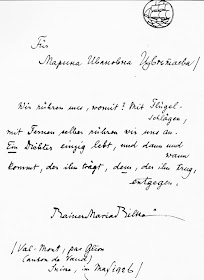 Für
Марина Ивановна Цветаева /
Wir rühren uns, womit? Mit Flügel-
schlägen,
mit Fernen selber rühren wir uns an.
Ein Dichter einzig lebt, und dann und
wann
kommt, der ihn trägt, dem, der ihn trug,
entgegen.
Rainer Maria Rilke
/ Val-Mont, par Glion
(Canton de Vaud)
Suisse, im May 1926 /